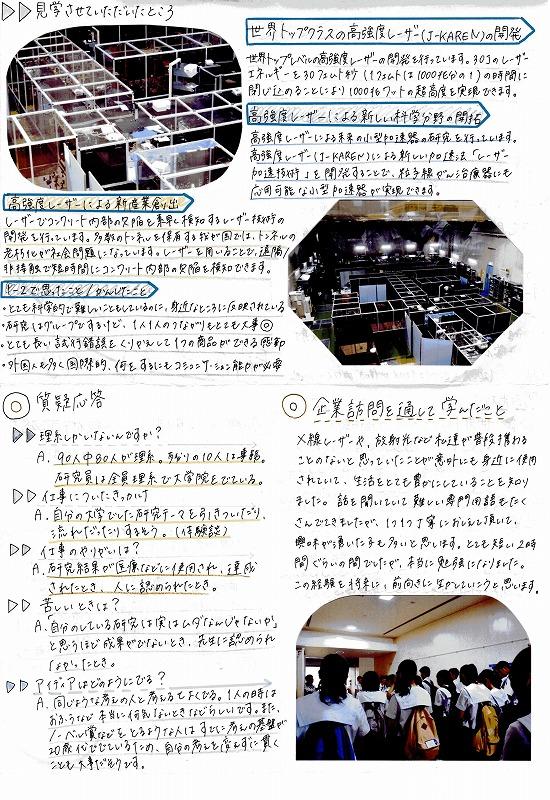 ▷▷見学させていただいたところ
世界トップクラスの高強度レーザー(J-KAREN)の開発
世界トップレベルの高強度レーザーの開発を行っています。30Jのレーザー
エネルギーを30フェムト秒(1フェムトは1000兆分の1)の時間に
閉じ込めることにより1000兆ワットの超高度を実現できます。
高強度レーザーによる新しい科学分野の開拓
高強度レーザーによる未来の小型加速器の研究を行っています。
高強度レーザー(J-KAREN)による新しい加速法「レーザー
加速技術」を開発することで、粒子線がん治療器にも
応用可能な小型加速器が実現できます。
高強度レーザーによる新産業創出
レーザーでコンクリート内部の欠陥を素早く検知するレーザー技術の
開発を行っています。多数のトンネルを保有する我が国では、トンネルの
老朽化が社会問題になっています。レーザーを用いることで、遠隔/
非接触で短時間にコンクリート内部の欠陥を検知できます。
思ったこと/かんじたこと
・とても科学的で難しいこともしているのに、身近なところに反映されている
・研究はグループでするけど、1人1人のつながりもとても大事◎
・とても長い試行錯誤をくりかえして1つの商品ができる
・外国人も多く国際的、何をするにもコミュニケーション能力が必要
◎質疑応答
▷▷理系しかいないんですか?
A. 90人中80人が理系。残りの10人は事務。
研究員は全員理系で大学院をでている。
▷▷仕事についたきっかけ
A. 自分の大学でした研究テーマを引きついだり、
流れだったりするそう。(体験談)
▷▷仕事のやりがいは?
A. 研究結果が医療などに使用され、達成
されたとき、人に認められたとき。
▷▷苦しいときは?
A.「自分のしている研究は実はムダなんじゃないか」
と思うほど成果がでないとき、先生に認められ
なかったとき。
▷▷アイディアはどのようにでる?
A. 同じような考えの人と考えるとよくでる。1人の時は
おふろなど本当に何気ないときなどらしいです。また、
ノーベル賞などをとるような人はすでに考えの基盤が
20歳代でできているため、自分の考えを変えずに貫く
ことも大事だそうです。
◎企業訪問を通して学んだこと
X線レーザーや、放射光など私達が普段携わる
ことのないと思っていたことが意外にも身近に使用
されていて、生活をとても豊かにしていることを知り
ました。話を聞いていて難しい専門用語もたく
さんでてきましたが、1つ1つ丁寧におしえて頂いて、
興味が湧いた子も多いと思います。とても短い2時
間ぐらいの間でしたが、本当に勉強になりました。
この経験を将来に、前向きに生かしていこうと思います。